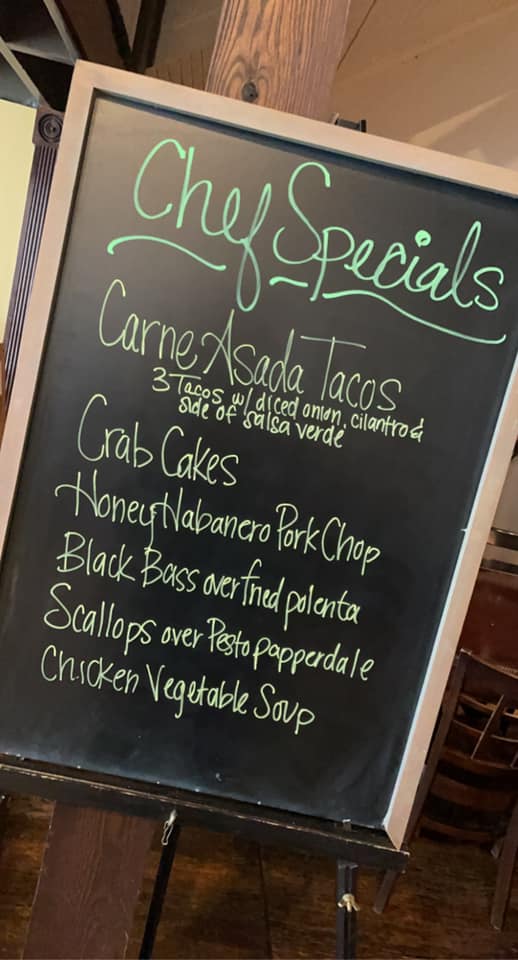 Chef Specials
Carne Asada Tacos
3 Tacos w/ diced onion, cilantro &
side of salsa verde
Crab Cakes
Honey Habanero Pork Chop
Black Bass over fried polenta
Scallops over Pesto papperdale
Chicken Vegetable Soup